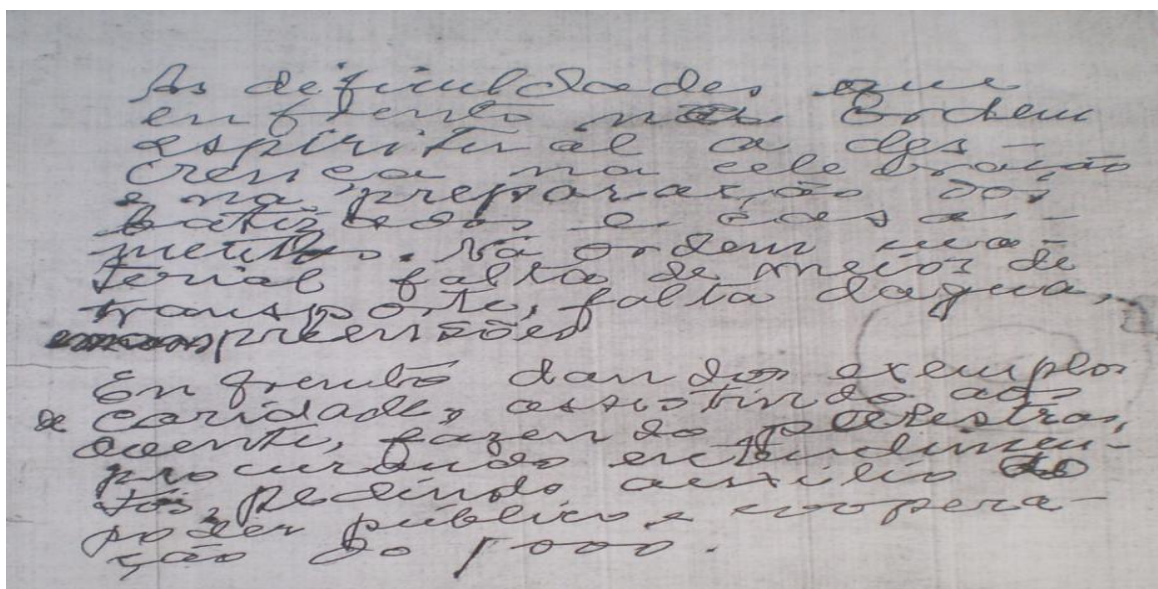 As deficuldades que
enfrento na ordem
espiritual a des-
crença na celebração
e na preparação dos
batizados e casa-
mentos. Na ordem ma-
terial falta de meios de
transporte, falta dagua,
preensões
Enfrento dando exemplos
de caridade, assistindo ao
doente, fazendo palestras,
procurando entendimen-
tos, pedindo auxilio do
poder público e coopera-
ção do povo.